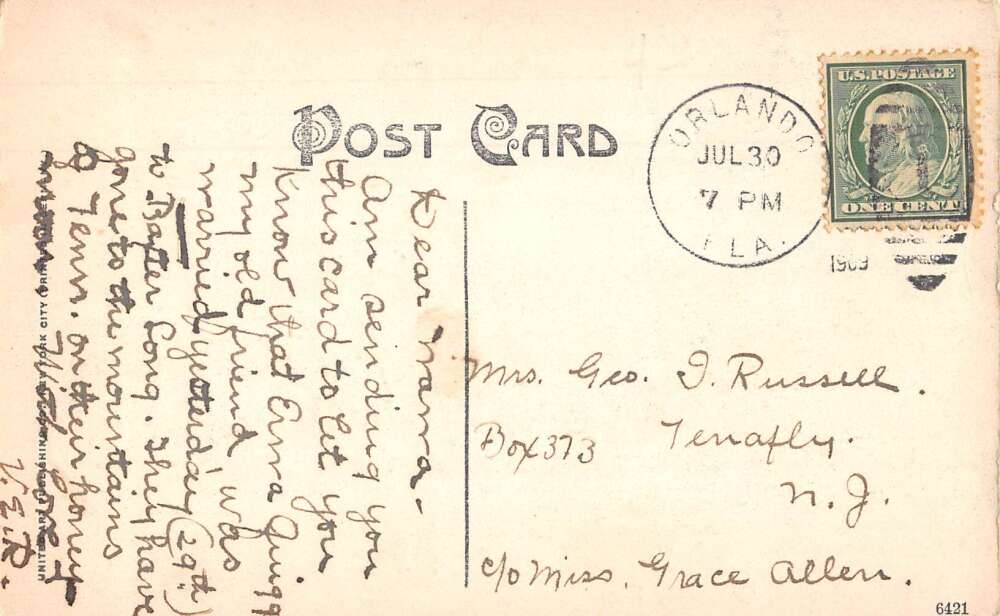 POST CARD
ORLANDO
JUL 30
7 PM
FLA.
1909
U.S. POSTAGE
ONE CENT
Dear Mama -
Am sending you
this card to let you
know that Erma Quigg
my old friend was
married yesterday (29th)
to Baxter Long. They have
gone to the mountains
of Tenn. on their honey-
V.E.R.
Mrs. Geo. I. Russell.
Box 373 Tenafly.
N. J.
c/o Miss. Grace Allen.
UNITED ART PUBLISHING YORK CITY
6421